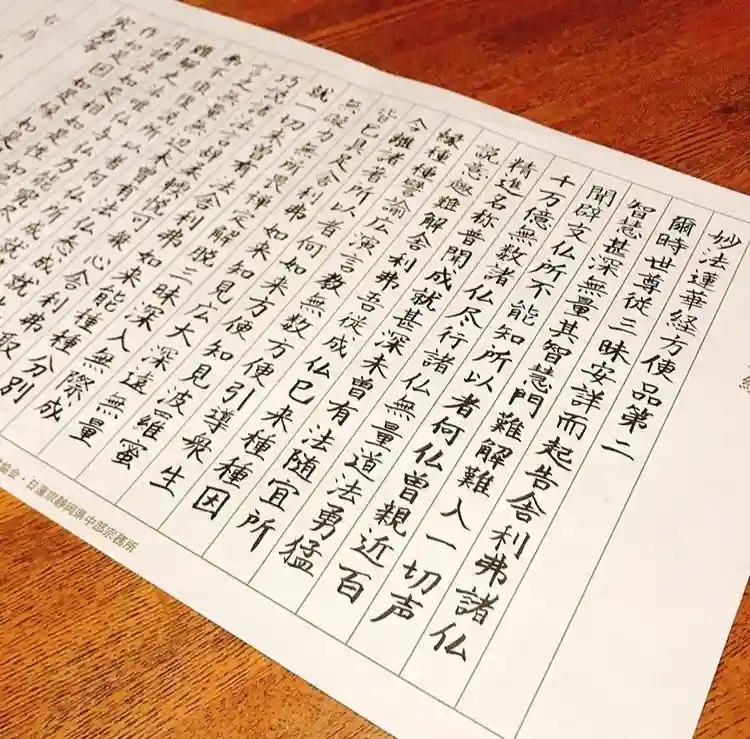 妙法蓮華経方便品第二
爾時世尊従三昧安詳而起告舎利弗諸仏
智慧甚深無量其智慧門難解難入一切声
聞辟支仏所不能知所以者何仏曽親近百
千万億無数諸仏尽行諸仏無量道法勇猛
精進名称普聞成就甚深未曽有法随宜所
説意趣難解舎利弗吾従成仏已来種種因
縁種種譬喩広演言教無数方便引導衆生
令離諸著所以者何如来方便知見波羅蜜
皆已具足舎利弗如来知見広大深遠無量
無礙力無所畏禅定解脱三昧深入無際成
就一切未曽有法舎利弗如来能種種分別
巧説諸法言辞柔軟悦可衆心舎利弗取
言之無量無辺未曽有法仏悉成就
弗不須復説所以者何仏所成就
難解之法唯仏与仏乃能
究竟等
会・日蓮宗静岡県中部宗務所